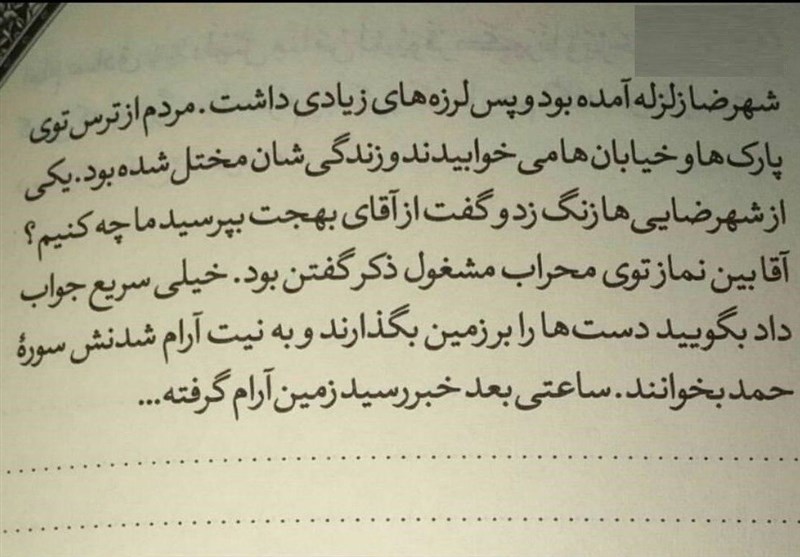 شهرضا زلزله آمده بود و پس لرزه‌های زیادی داشت. مردم از ترس توی
پارک‌ها و خیابان‌ها می خوابیدند و زندگی شان مختل شده بود. یکی
از شهرضایی‌ها زنگ زد و گفت از آقای بهجت بپرسید ما چه کنیم؟
آقا بین نماز توی محراب مشغول ذکر گفتن بود. خیلی سریع جواب
داد بگویید دست‌ها را بر زمین بگذارند و به نیت آرام شدنش سورهٔ
حمد بخوانند. ساعتی بعد خبر رسید زمین آرام گرفته...